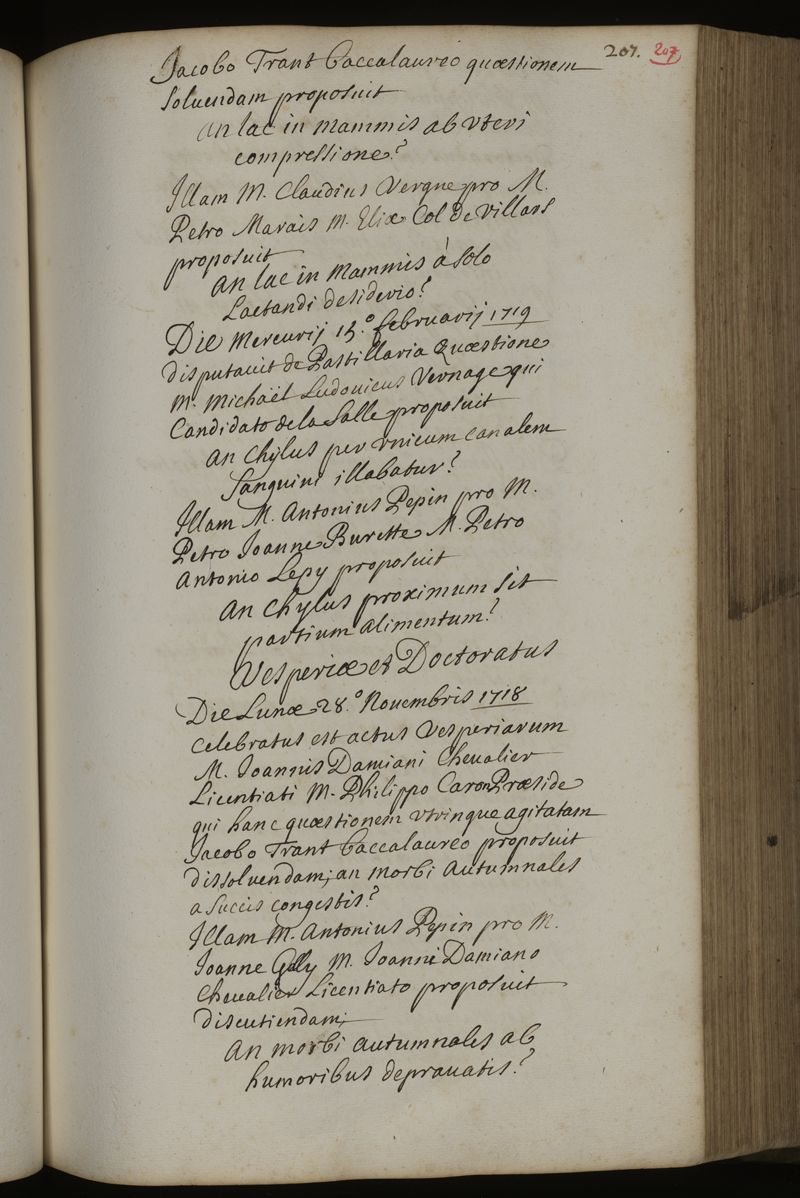 207. 207
Jacobo Trant Baccalaureo quæstionem
Soluendam proposuit
an lac in mammis ab vteri
compressione?
Illam M. Claudius Vergne pro M.
Petro Marais M. Eliæ Col de Villars
proposuit
an lac in mammis à solo
Lactandi desiderio?
Die Mercurij 15.° februarij 1719
disputauit de Pastillaria Quæstione
M. Michaël Ludouicus Vernage qui
Candidato de la Salle proposuit
an Chÿlus per vnicum canalem
Sanguini illabatur?
Illam M. Antonius Pepin pro M.
Petro Joanne Burette M. Petro
Antonio Lepy proposuit
An Chylus proximum sit
partium alimentum?
Vesperiæ et Doctoratus
Die Lunæ 28.° Nouembris 1718
Celebratus est actus Vesperiarum
M. Joannis Damiani Cheualier
Licentiati M. Philippo Caron Præside
qui hanc quæstionem vtrinque agitatam
Jacobo Trant Baccalaureo proposuit
dissoluendam; an morbi Autumnales
a Succis congestis?
Illam M. Antonius Pepin pro M.
Joanne M. Joanni Damiano
Cheualier Licentiato proposuit
discutiendam;
An morbi autumnales ab
humoribus deprauatis?